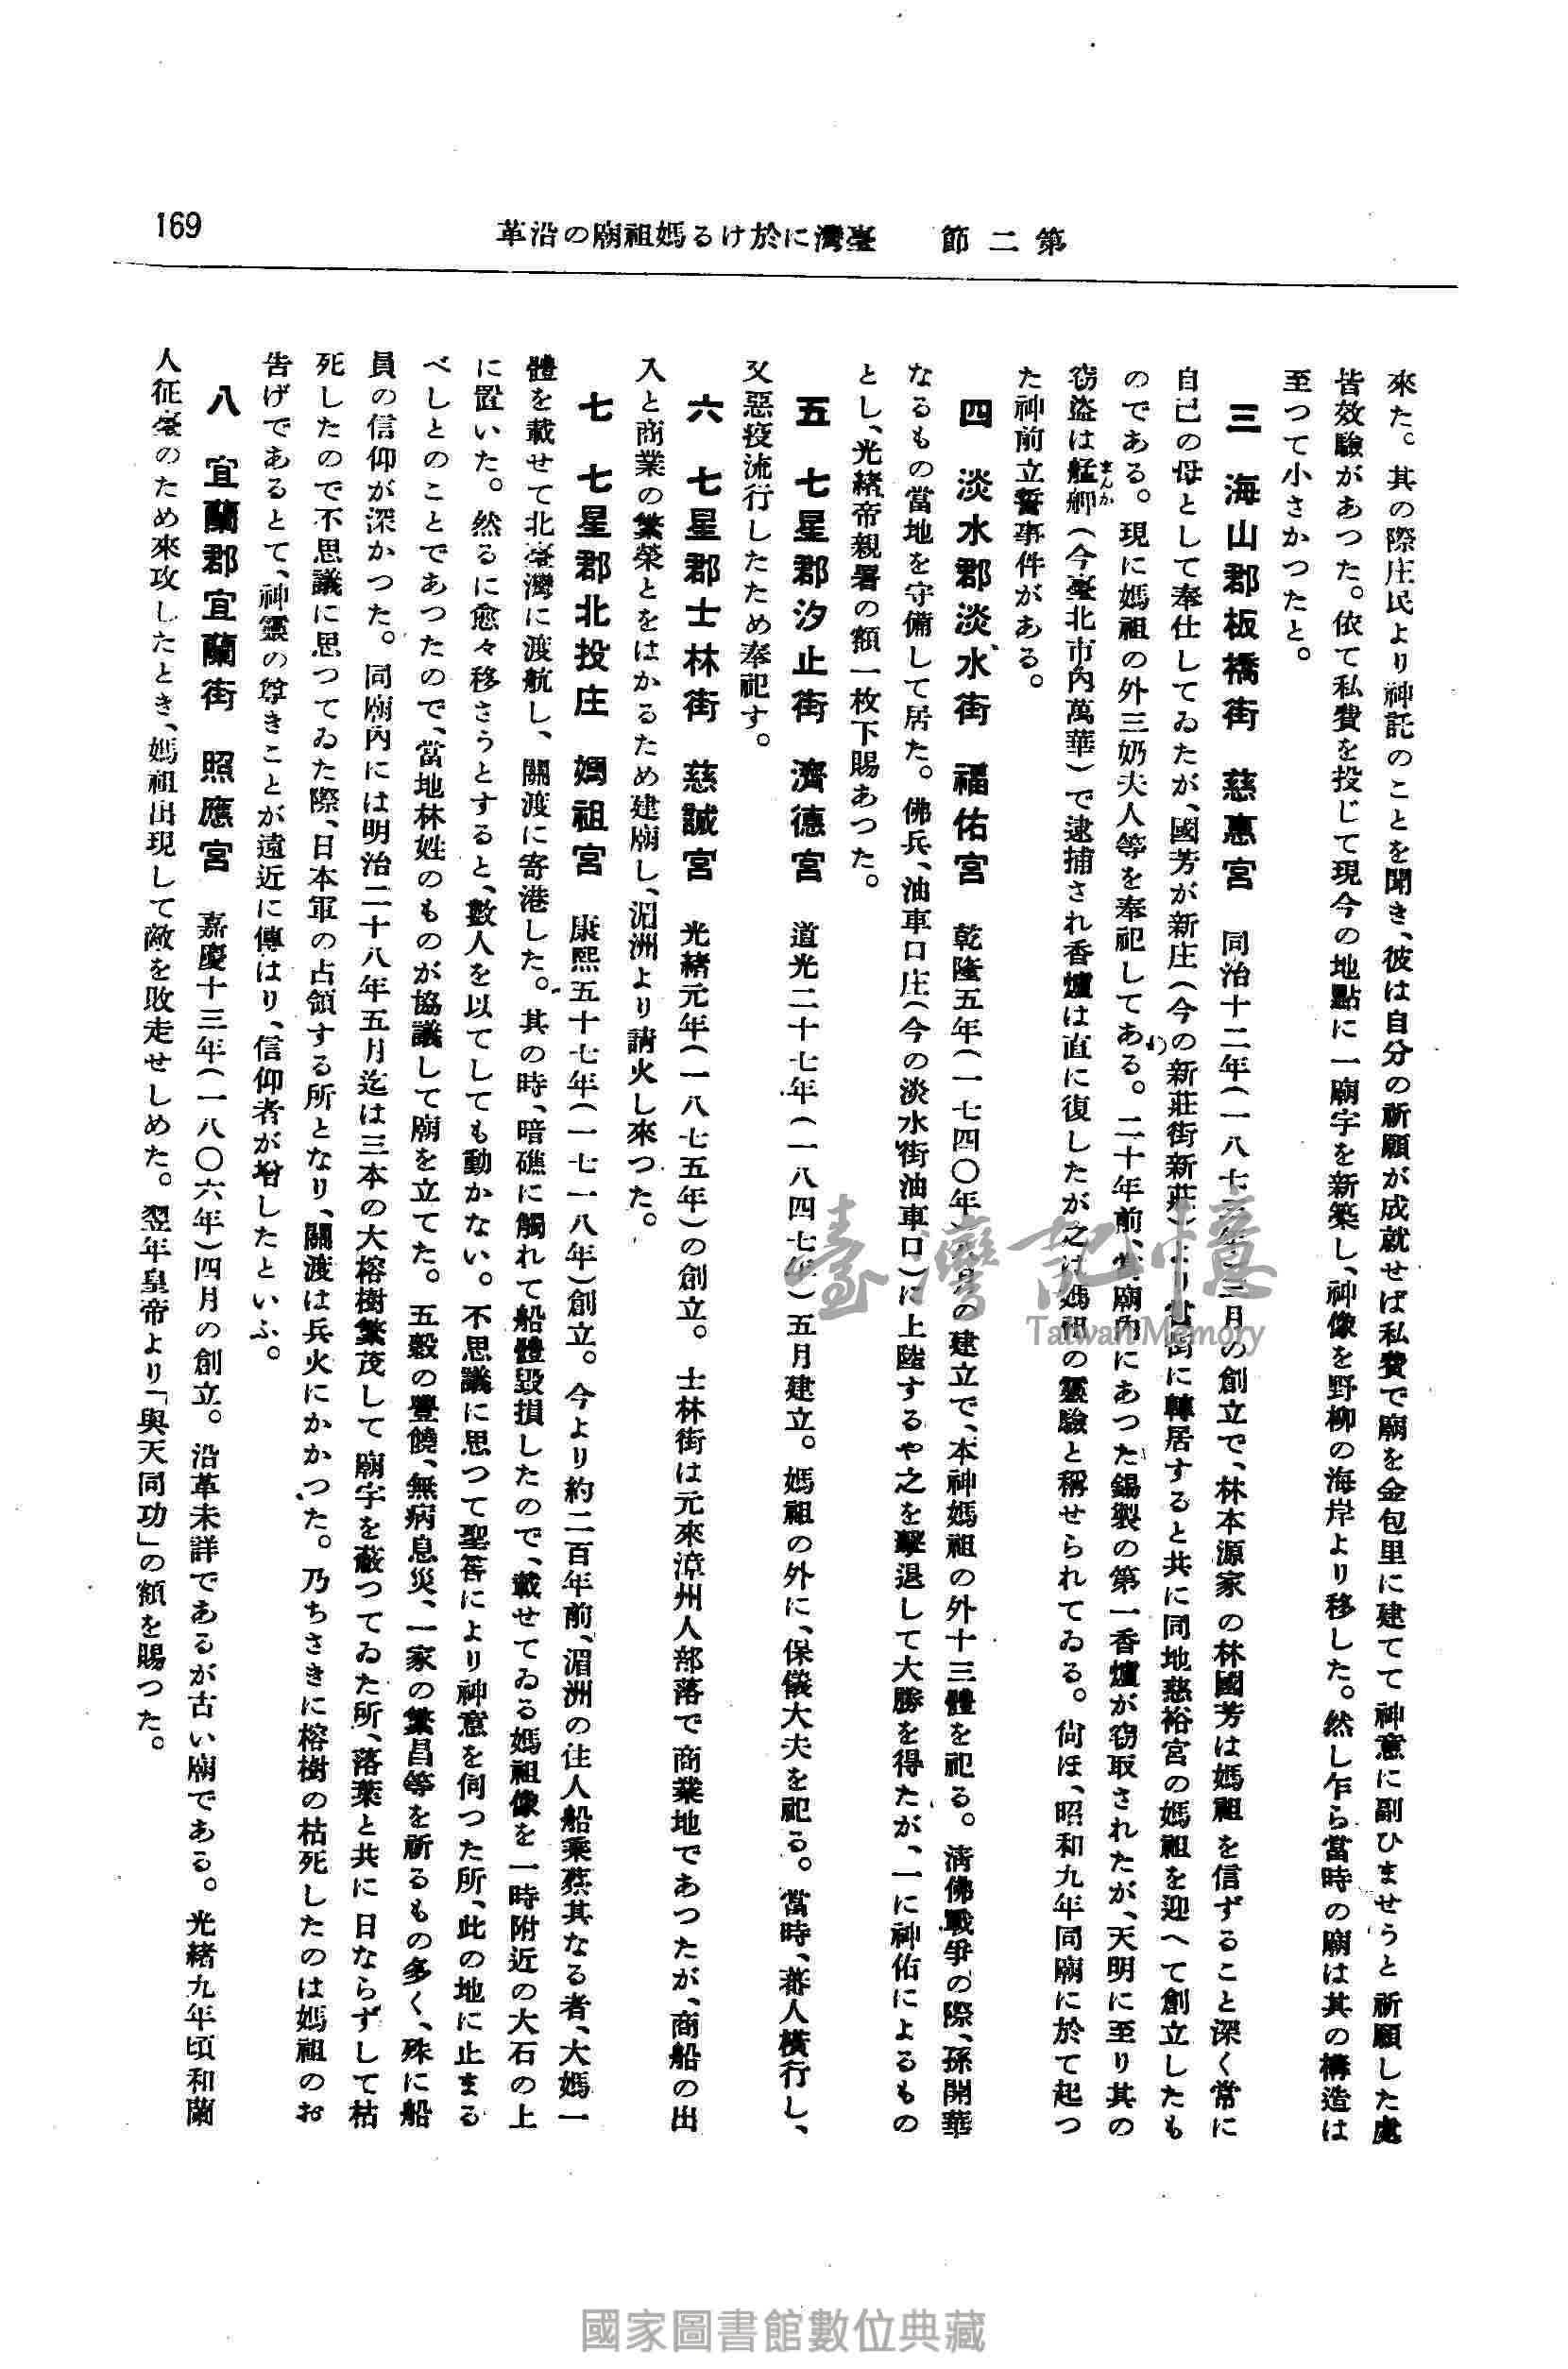 169
第二節　臺灣に於ける媽祖廟の沿革
來た。其の際庄民より神託のことを聞き、彼は自分の祈願が成就せば私費で廟を金包里に建てて神意に副ひませうと祈願した處
皆效驗があつた。依て私費を投じて現今の地點に一廟宇を新築し、神像を野柳の海岸より移した。然し乍ら當時の廟は其の構造は
至つて小さかつたと。
三　海山郡板橋街　慈惠宮　同治十二年(一八七三年)三月の創立で、林本源家の林國芳は媽祖を信ずること深く常に
自己の母として奉仕してゐたが、國芳が新庄(今の新莊街新莊)より當街に轉居すると共に同地慈裕宮の媽祖を迎へて創立したも
のである。現に媽祖の外三奶夫人等を奉祀してある。二十年前、當廟內にあつた錫製の第一香爐が窃取されたが、天明に至り其の
窃盜は艋舺(今臺北市內萬華)で逮捕され香爐は直に復したが之は媽祖の靈驗と稱せられてゐる。尙ほ、昭和九年同廟に於て起つ
まんか
た神前立誓事件がある。
四　淡水郡淡水街　福佑宮　乾隆五年(一七四〇年)八月の建立で、本神媽祖の外十三體を祀る。淸佛戰爭の際、孫開華
なるもの當地を守備して居た。佛兵、油車口庄(今の淡水街油車口)に上陸するや之を擊退して大勝を得たが、一に神佑によるもの
とし、光緖帝親署の額一枚下賜あつた。
五　七星郡汐止街　濟德宮　道光二十七年(一八四七年)五月建立。媽祖の外に、保儀大夫を祀る。當時、蕃人橫行し、
又惡疫流行したため奉祀す。
六　七星郡士林街　慈諴宮　光緖元年(一八七五年)の創立。士林街は元來漳州人部落で商業地であつたが、商船の出
入と商業の繁榮とをはかるため建廟し、湄洲より請火し來つた。
七　七星郡北投庄　媽祖宮　康熙五十七年(一七一八年)創立。今より約二百年前、湄洲の住人船乘蔡某なる者、大媽一
體を載せて北臺灣に渡航し、關渡に寄港した。其の時、暗礁に觸れて船體毀損したので、載せてゐる媽祖像を一時附近の大石の上
に置いた。然るに愈々移さうとすると、數人を以てしても動かない。不思議に思つて聖筶により神意を伺つた所、此の地に止まる
べしとのことであつたので、當地林姓のものが協議して廟を立てた。五穀の豐饒、無病息災、一家の繁昌等を祈るもの多く、殊に船
員の信仰が深かつた。同廟內には明治二十八年五月迄は三本の大榕樹繁茂して廟宇を蔽つてゐた所、落葉と共に日ならずして枯
死したので不思議に思つてゐた際、日本軍の占領する所となり、關渡は兵火にかかつた。乃ちさきに榕樹の枯死したのは媽祖のお
告げであるとて、神靈の尊きことが遠近に傳はり、信仰者が增したといふ。
八　宜蘭郡宜蘭街　照應宮　嘉慶十三年(一八〇六年)四月の創立。沿革未詳であるが古い廟である。光緖九年頃和蘭
人征臺のため來攻したとき、媽祖出現して敵を敗走せしめた。翌年皇帝より「與天同功」の額を賜つた。
臺灣記憶
Taiwan Memory
國家圖書館數位典藏